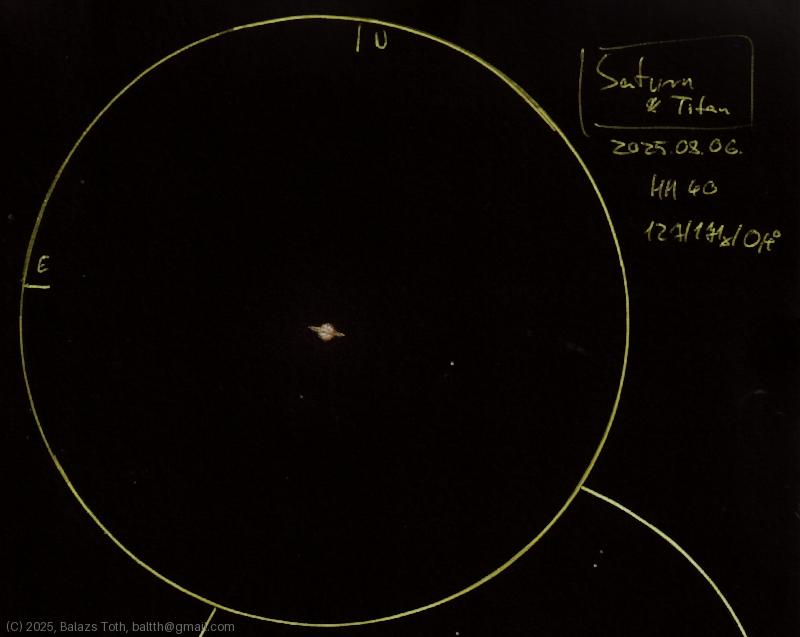 N
Saturn
& Titan
2025.08.06.
E
127/171x/0,4°
(C) 2025, Balazs Toth, baltth@gmail.com